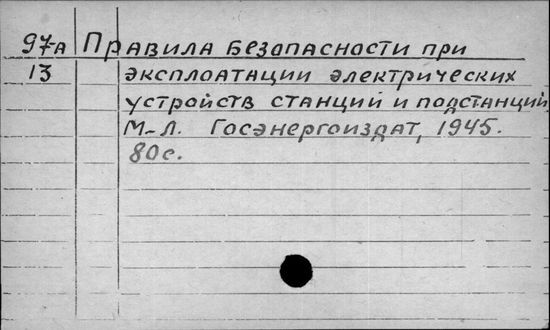 97-А Правила безопасности при
13 эксплоатации электрических
устройств станций и подстанций,
М-Л. Госэнергоиздат, 1945.
80с.